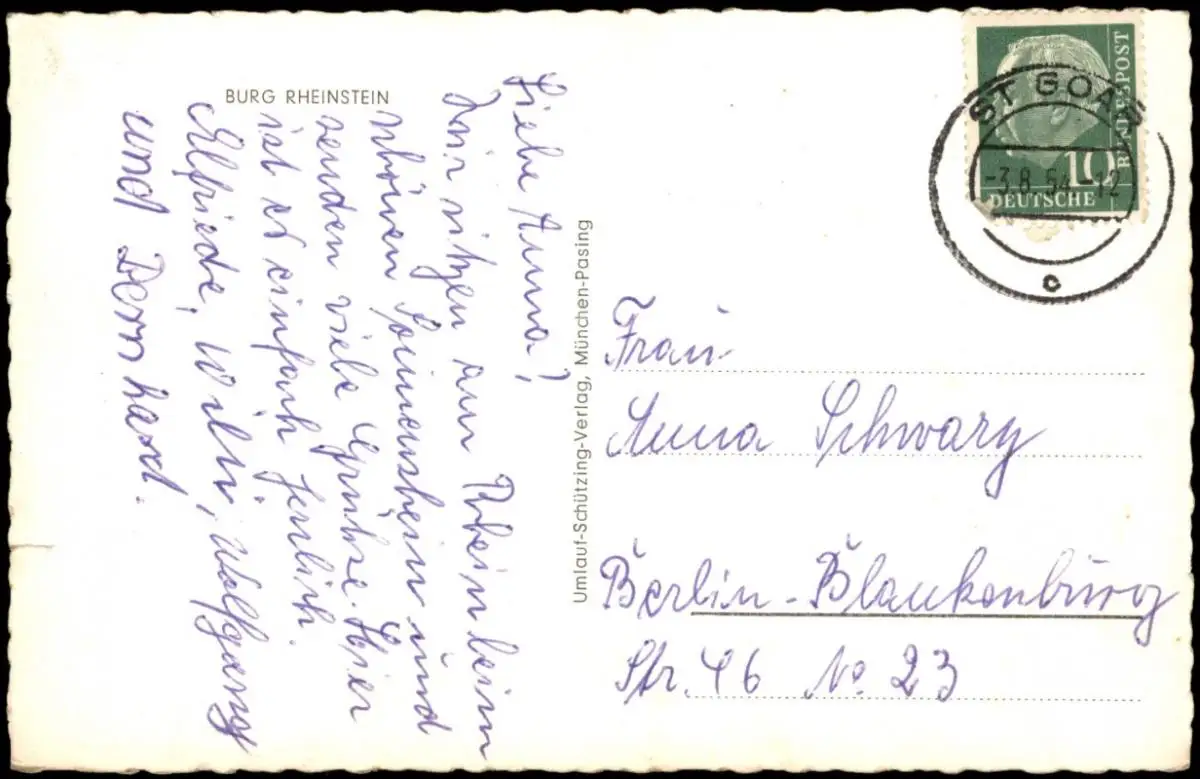 BURG RHEINSTEIN
Liebe Anna!
Wir sitzen am Rhein beim
schönen Sonnenschein und
senden viele Grühse. Hier
ist es einfach herlich.
Elfriede, Willi, Wolfgang
und Bernhard.
Umlauf-Schützing-Verlag, München-Pasing
ST GOAR
-3.8.54-12
c
10
DEUTSCHE
BUNDESPOST
Frau
Anna Schwarz
Berlin-Blankenburg
Str. 46 No 23